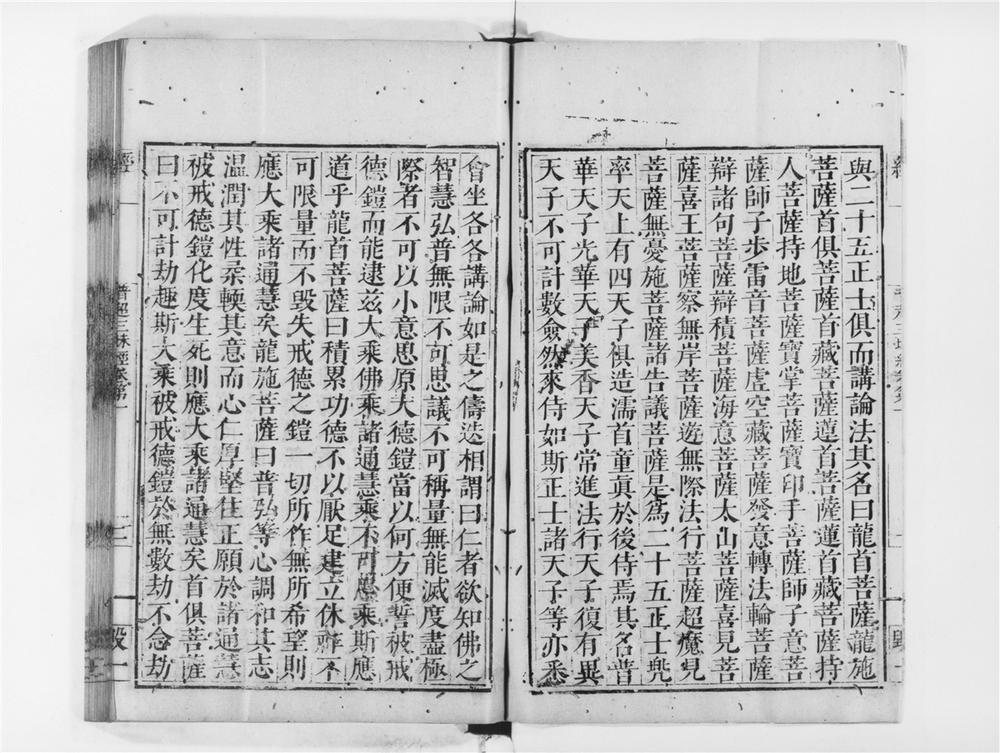 與二十五正士俱而講論法其名曰龍首菩薩龍施
菩薩首俱菩薩首藏菩薩蓮首菩薩蓮首藏菩薩持
人菩薩持地菩薩寶掌菩薩寶印手菩薩師子意菩
薩師子步雷音菩薩虛空藏菩薩發意轉法輪菩薩
辯諸句菩薩辯積菩薩海意菩薩大山菩薩喜見菩
薩喜王菩薩察無岸菩薩遊無際法行菩薩超魔見
菩薩無憂施菩薩諸告議菩薩是為二十五正士兜
率天上有四天子俱造濡首童真於後侍焉其名普
華天子光華天子美香天子常進法行天子復有異
天子不可計數僉然來侍如斯正士諸天子等亦悉
會坐各各講論如是之儔迭相謂曰仁者欲知佛之
智慧弘普無限不可思議不可稱量無能滅度盡極
際者不可以小意思原大德鎧當以何方便誓被戒
德鎧而能逮茲大乘佛乘諸通慧乘不可思乘斯應
道乎龍首菩薩曰積累功德不以厭足建立休祚不
可限量而不毀失戒德之鎧一切所作無所希望則
應大乘諸通慧矣龍施菩薩曰普弘等心調和其志
溫潤其性柔輭其意而心仁厚堅住正願於諸通慧
被戒德鎧化度生死則應大乘諸通慧矣首俱菩薩
曰不可計劫趣斯大乘被戒德鎧於無數劫不念劫
經
普超三昧經卷第一
三
毀一